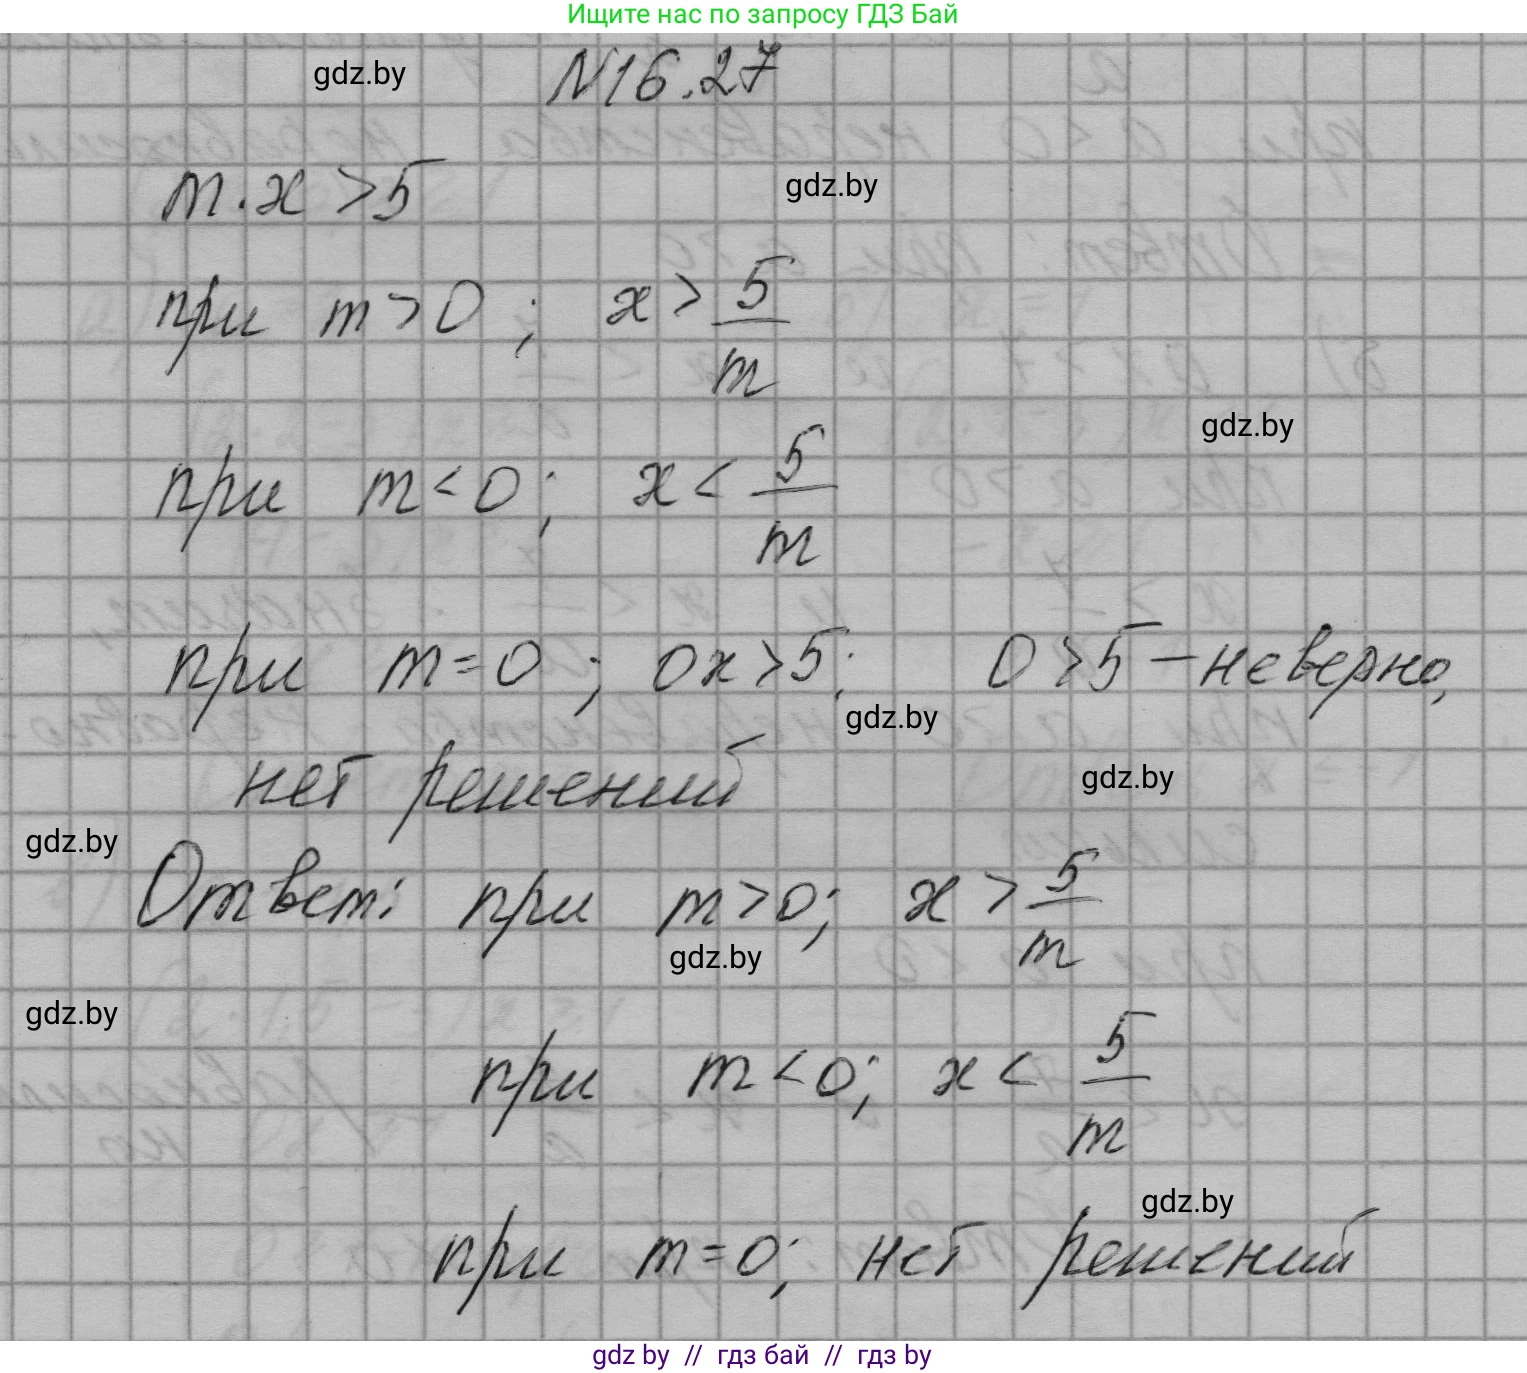 Ищите нас по запросу ГДЗ Бай
gdz.by
N16.27
m·x > 5
gdz.by
при m > 0; x > 5/m
gdz.by
при m < 0; x < 5/m
при m = 0; 0x > 5; 0 > 5 – неверно,
gdz.by
нет решений
gdz.by
gdz.by
Ответ: при m > 0; x > 5/m
gdz.by
gdz.by
при m < 0; x < 5/m
gdz.by
при m = 0; нет решений
gdz by // гдз бай // гдз by